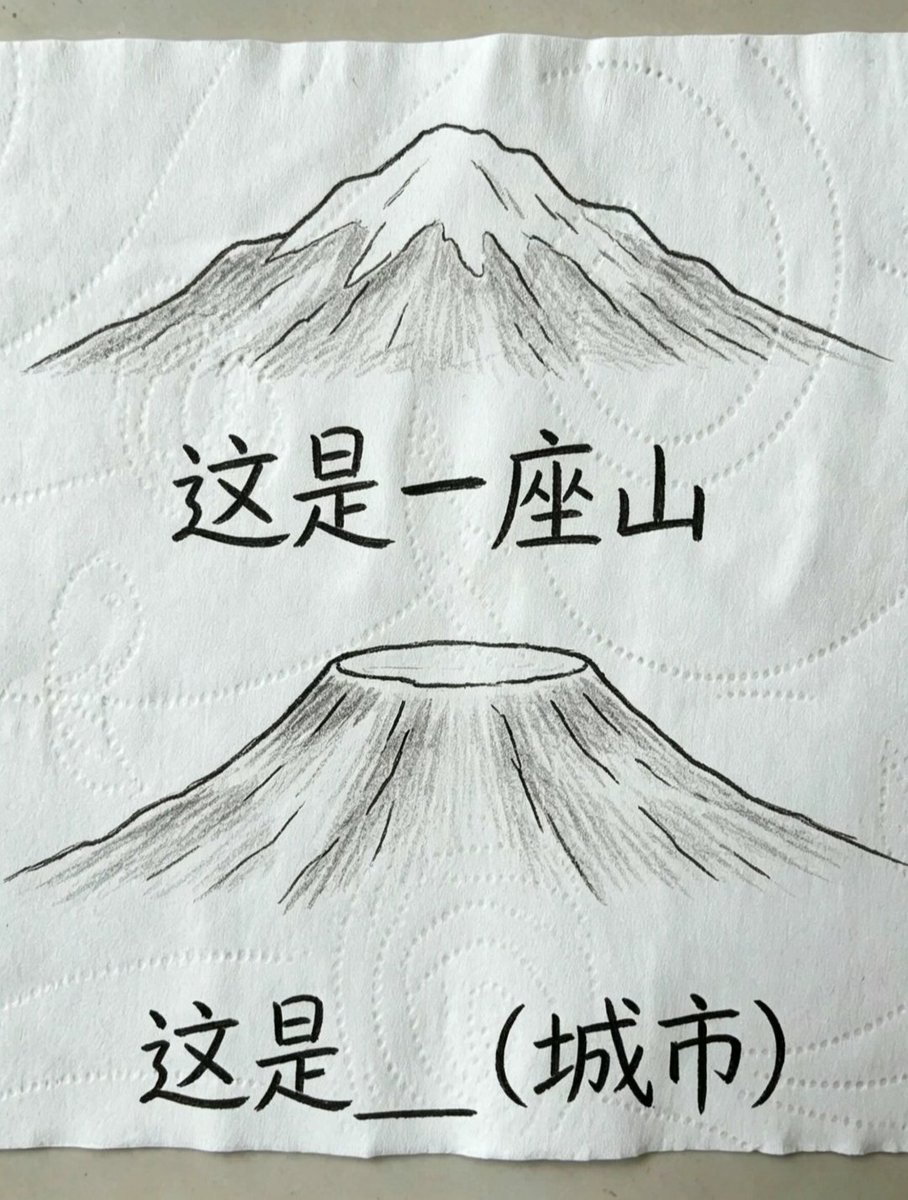 这是一座山
这是__（城市）